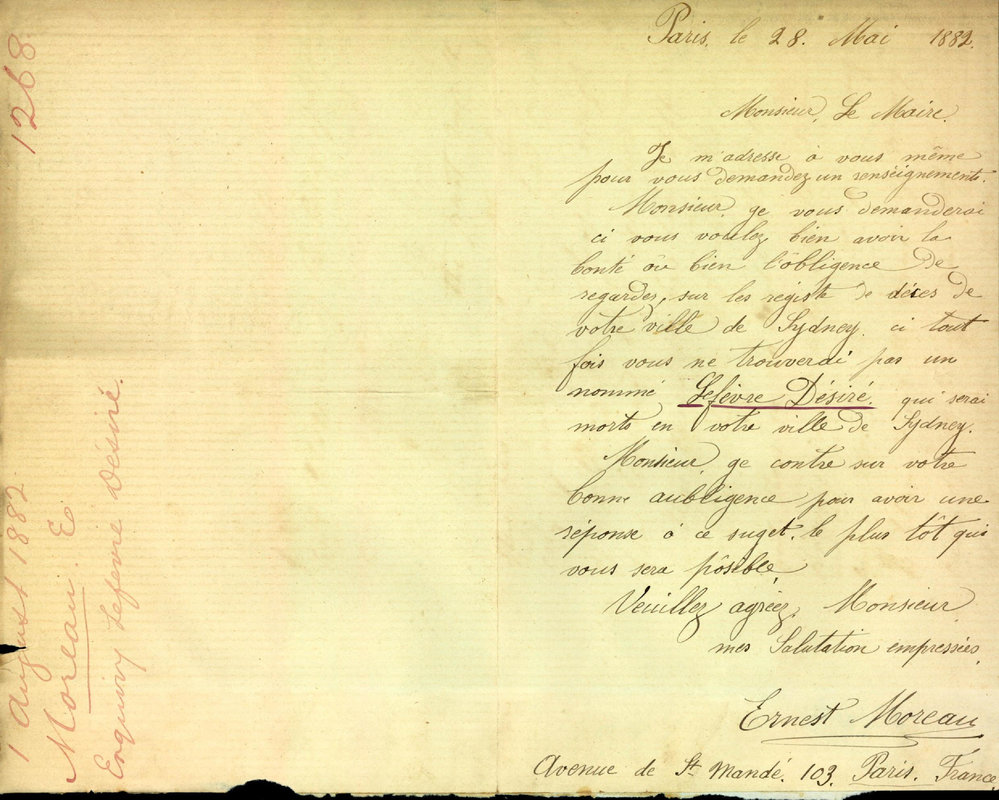 Paris, le 28. Mai 1882.
Monsieur, Le Maire.
Je m'adresse à vous même
pour vous demandez un renseignements.
Monsieur, ge vous demanderai
ci vous voulez bien avoir la
bonté ou bien l'obligence de
regardez, sur les registe de décès de
votre ville de Sydney. ci tout
fois vous ne trouverai pas un
nommé Lefèvre Désiré, qui serai
morts en votre ville de Sydney.
Monsieur, ge contre sur votre
bonne aubligence pour avoir une
réponse à ce suget, le plus tôt qui
vous sera pôsible
Veuillez agréez, Monsieur,
mes Salutation empressées.
Ernest Moreau
Avenue de St Mandé. 103, Paris. France
1268
1 August 1882
Moreau. E
Enquiry Lefevre Desiré.